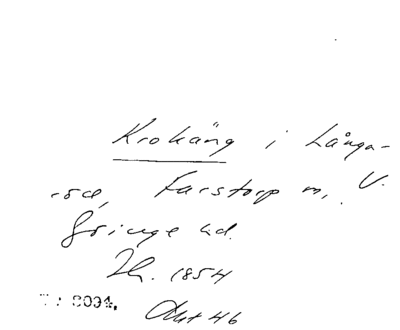 Krokäng i Långa-
röd, Farstorp sn, V.
Göinge hd.
Jh. 1854
8004.
Akt 46